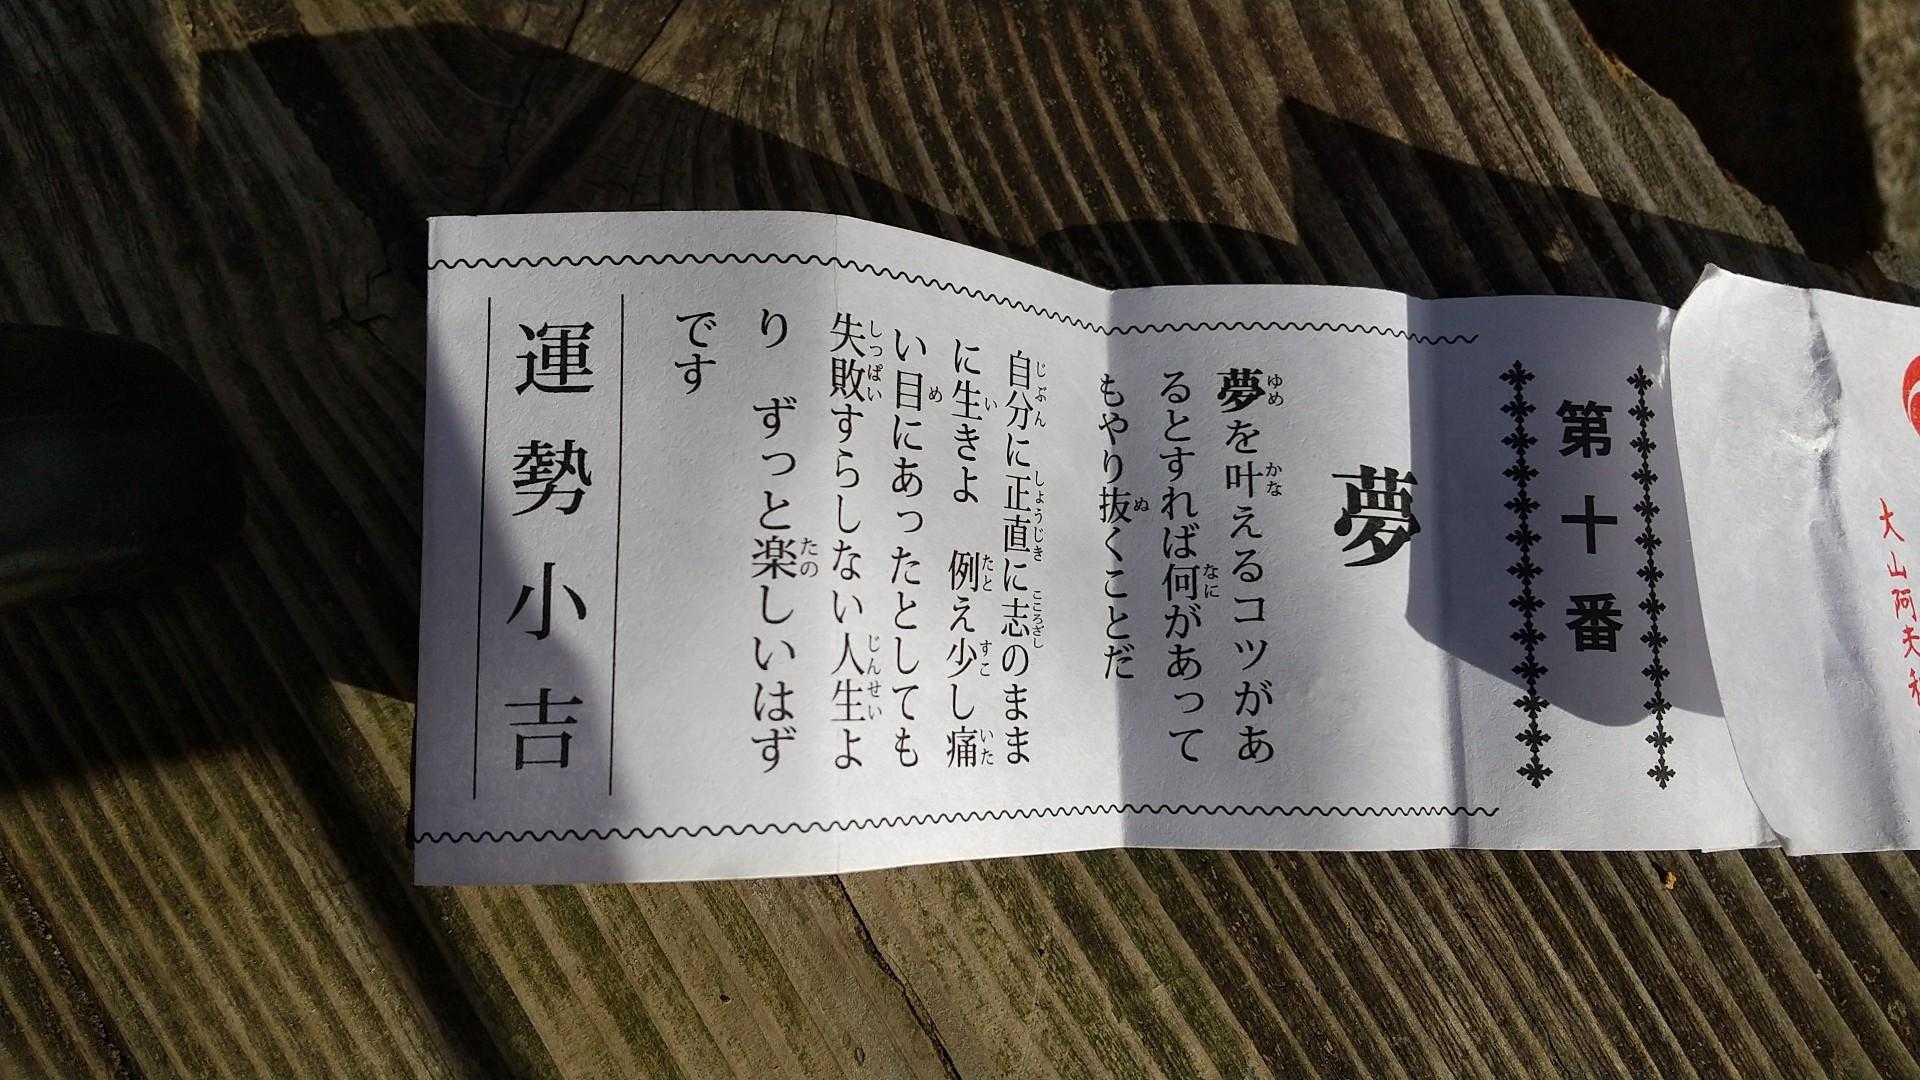 大山阿夫
第十番
夢
夢を叶えるコツがあ
るとすれば何があって
もやり抜くことだ
自分に正直に志のまま
に生きよ　例え少し痛
い目にあったとしても
失敗すらしない人生よ
り　ずっと楽しいはず
です
運勢小吉